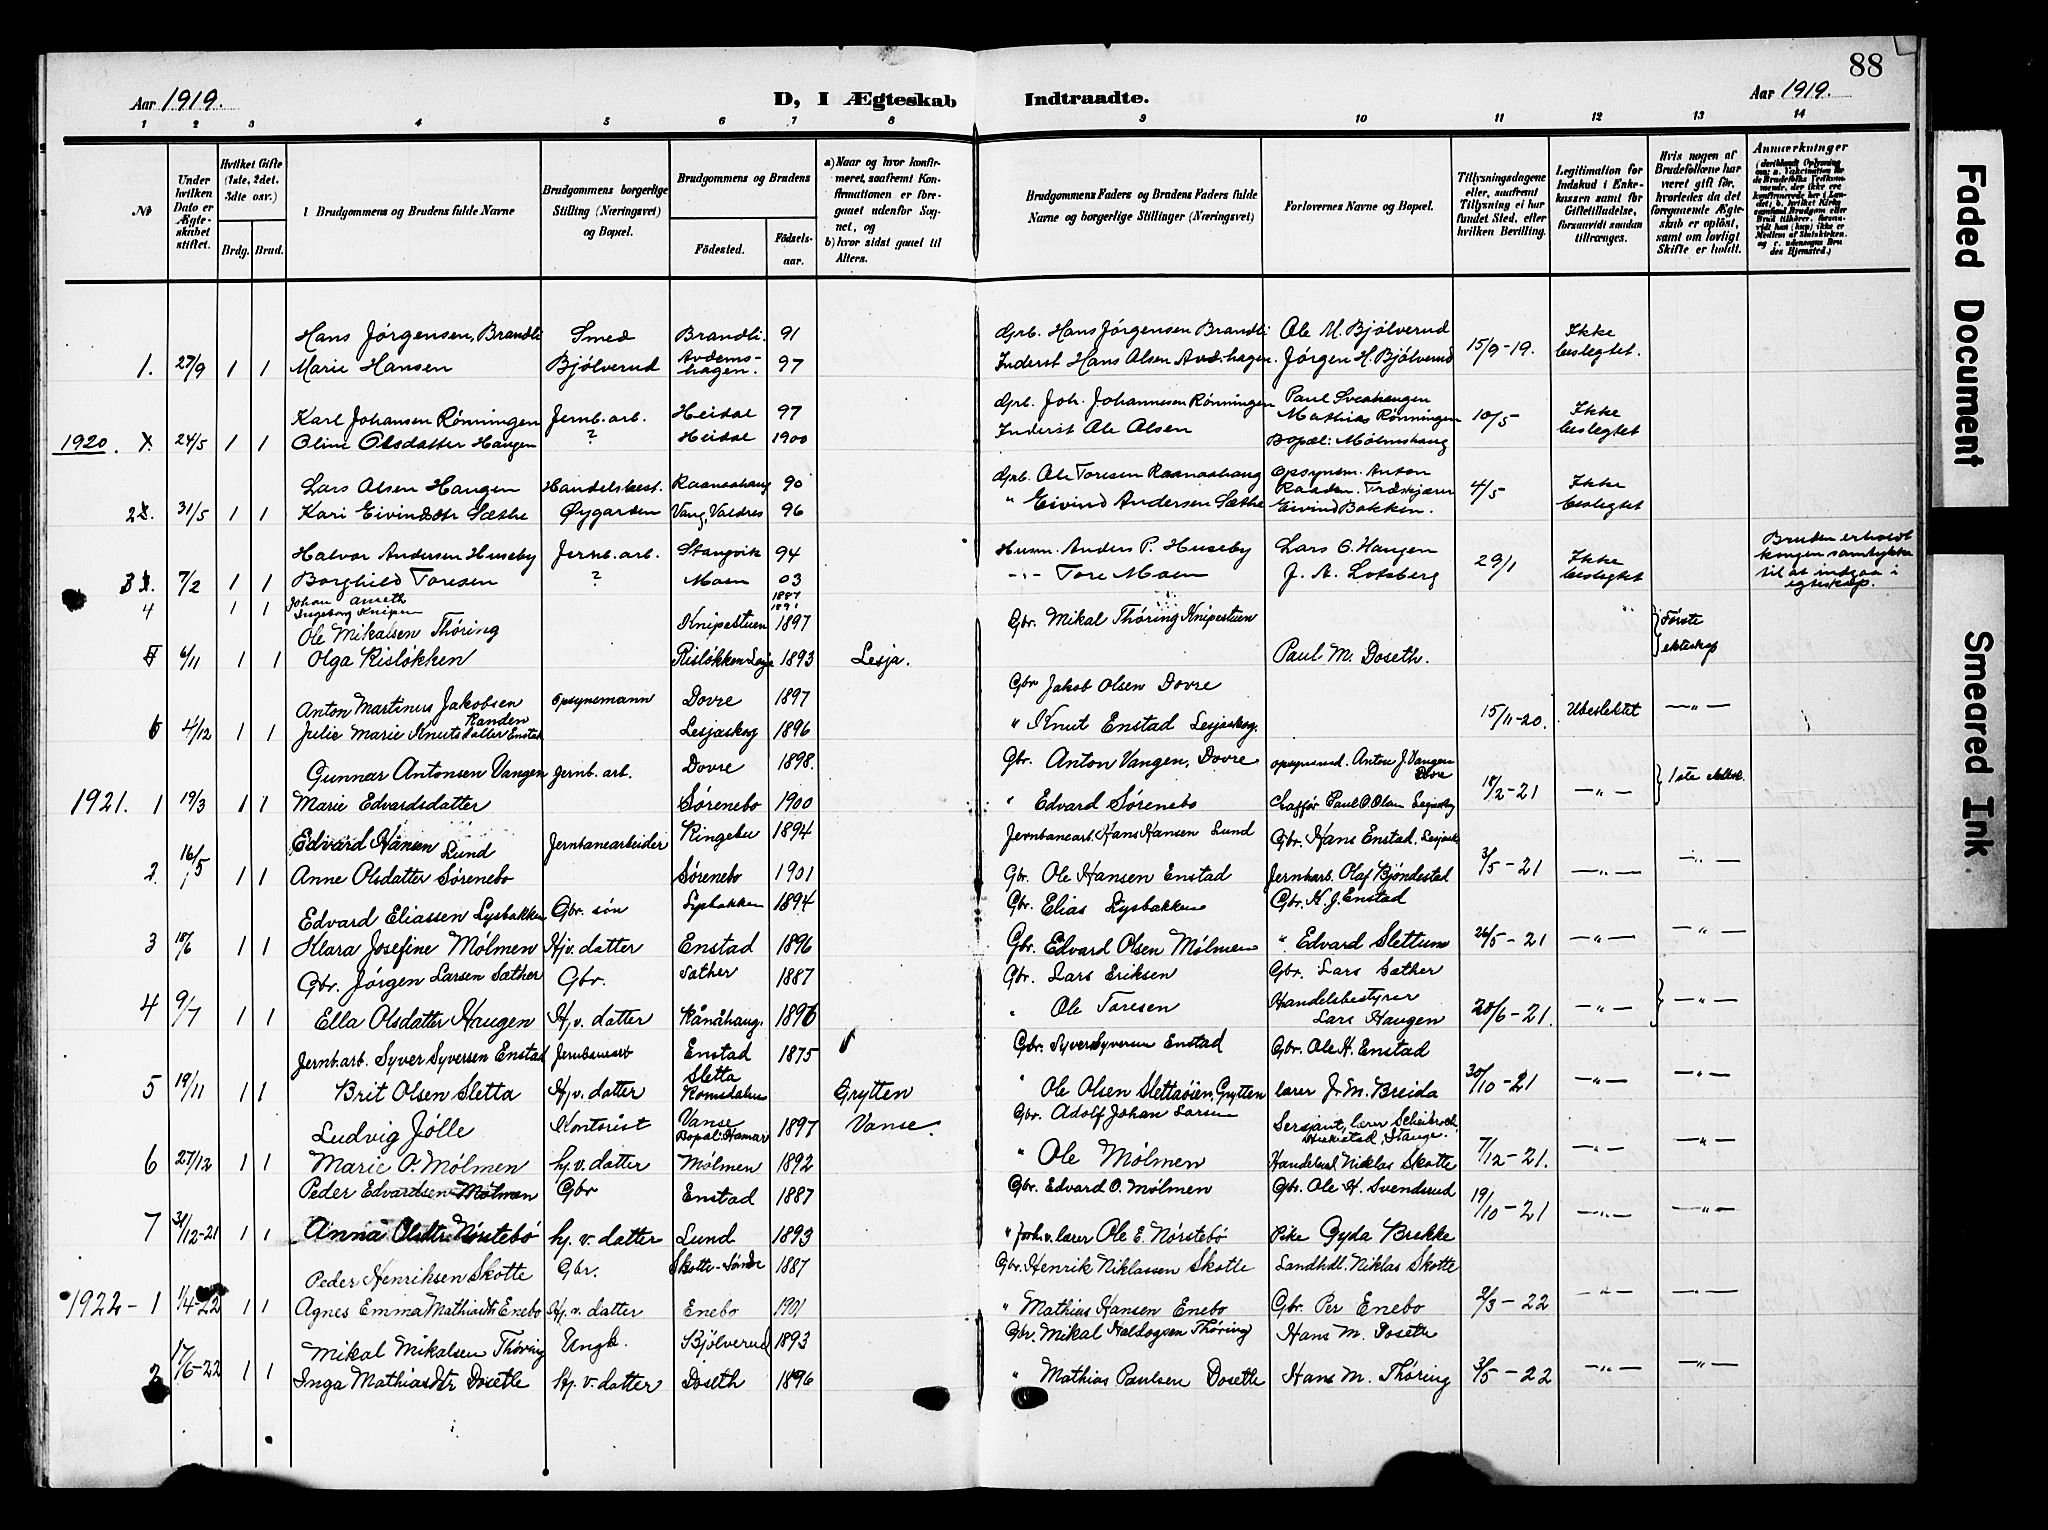 88
Aar 1919.
D, I Ægteskab Indtraadte.
Aar 1919.
1 2 3 4 5 6 7 8 9 10 11 12 13 14
No
Under hvilken Dato er Ægteskabet stiftet.
Hvilket Gifte (1ste, 2det, 3dte osv.)
Brdg. Brud.
Brudgommens og Brudens fulde Navne
Brudgommens borgerlige Stilling (Næringsvei) og Bopæl.
Brudgommens og Brudens
Födested. Födselsaar.
a) Naar og hvor konfirmeret, saafremt Konfirmationen er foregaaet udenfor Sognet, og
b) hvor sidst gaaet til Alters.
Brudgommens Faders og Brudens Faders fulde Navne og borgerlige Stillinger (Næringsvei)
Forlovernes Navne og Bopæl.
Tillysningsdagene eller, saafremt Tillysning ei har fundet Sted, efter hvilken Bevilling.
Legitimation for Indskud i Enkekassen samt for Giftetilladelse, forsaavidt saadan tiltrænges.
Hvis nogen af Brudefolkene har været gift før, hvorledes da det foregaaende Ægteskab er opløst, samt om lovligt Skifte er holdt.
Anmærkninger
Hans Jørgensen, Brandli Smed Brandli. 91 Grb. Hans Jørgensen Brandli Ole M. Bjølverud Ikke
1. 27/9 1 1 Marie Hansen Bjølverud Avdemshagen. 97 Inderst Hans Olsen Avd.hagen. Jørgen H. Bjølverud 15/9-19. beslegtet.
Karl Johansen Rønningen Jernb. arb. Heidal 97 Grb. Joh. Johannesen Rønningen Paul Sveahaugen Ikke
Mathias Rønningen 10/5 beslegtet
1920. 1. 24/5 1 1 Oline Olsdatter Haugen ? Heidal 1900 Inderst Ole Olsen Bopæl: Mølmshaug
Lars Olsen Haugen Handelsbest. Raanaahaug 90 Grb. Ole Toresen Raanaahaug Opsynsm. Anton Raaden. Ikke
2. 31/5 1 1 Kari Eivindsdtr Sæthe Øygarden Vang, Valdres 96 " Eivind Andersen Sæthe Eivind Bakken. 4/5 beslegtet
Halvor Andersen Huseby Jernb. arb. Stangvik 94 Husm. Anders P. Huseby Lars O. Haugen Ikke Bruden erholdt
kongen samtykke
3. 7/2 1 1 Borghild Toresen ? Moen 03 -"- Tore Moen J. A. Lotsberg 29/1 beslegtet til at indgaa i
egteskap.
4 1 1 Johan Amseth 1887
Ingeborg Knipen 1891
Ole Mikalsen Thøring Knipestuen 1897 Gbr. Mikal Thøring Knipestuen Første
5 6/11 1 1 Olga Risløkken Risløkken Lesja 1893 Lesja. Paul M. Doseth. ekteskap
Anton Martinus Jakobsen Randen opsynsmann Dovre 1897 Gbr Jakob Olsen Dovre
6 4/12 1 1 Julie Marie Knutsdatter Enstad Lesjaskog 1896 " Knut Enstad Lesjaskog. 15/11-20. Ubeslektet —"—
Gunnar Antonsen Vangen Jernb. arb. Dovre 1898. Gbr. Anton Vangen, Dovre opsynsmd. Anton J. Vangen Dovre 1ste ektesk.
1921. 1 19/3 1 1 Marie Edvardsdatter Sørenebo 1900 " Edvard Sørenebo Chaffør Paul O Olsen Lesjaskog 18/2-21 —"—
Edvard Hansen Lund Jernbanearbeider Ringebu 1894 Jernbanearb. Hans Hansen Lund Gbr. Hans Enstad, Lesjask
2. 16/5 1 1 Anne Olsdatter Sørenebo Sørenebo 1901 Gbr. Ole Hansen Enstad Jernb.arb. Olaf Bjøndestad 3/5-21 —"— —"—
Edvard Eliassen Lysbakken Gbr. søn Lysbakken 1894 Gbr. Elias Lysbakken Gbr. K. J. Enstad
3 18/6 1 1 Klara Josefine Mølmen Hjv. datter Enstad 1896 Gbr. Edvard Olsen Mølmen " Edvard Slettum 26/5-21 —"— —"—
Gbr. Jørgen Larsen Sæther Gbr. Sæther 1887 Gbr. Lars Eriksen Gbr. Lars Sæther
4 9/7 1 1 Ella Olsdatter Haugen Hj.v. datter Rånåhaug. 1896 " Ole Toresen Handelsbestyrer Lars Haugen 20/6-21. —"— —"—
Jernb.arb. Syver Syversen Enstad Jernbanearb Enstad 1875 Gbr. Syver Syversen Enstad Gbr. Ole H. Enstad
5 19/11 1 1 Brit Olsen Sletta Hj.v. datter Sletta Romsdalen Grytten " Ole Olsen Slettaøien, Grytten lærer J. M. Breida 30/10-21 —"— —"—
Ludvig Jølle Kontorist Vanse Bopæl: Hamar 1897 Vanse. Gbr. Adolf Johan Larsen Sersjant, lærer
6 27/12 1 1 Marie O. Mølmen hj.v. datter Mølmen 1892 " Ole Mølmen Handelsmd Niklas Skotte 7/12-21. —"— —"—
Peder Edvardsen Mølmen Gbr Enstad 1887 Gbr. Edvard O. Mølmen Gbr. Ole H. Svendsrud
7 31/12-21 1 1 Anna Olsdtr. Nørstebø hj.v. datter Lund 1893 " forh.v. lærer Ole E. Nørstebø Pike Gyda Brekke 19/10-21 —"— —"—
Peder Henriksen Skotte Gbr. Skotte-Søndre 1887 Gbr. Henrik Niklassen Skotte Landhdl. Niklas Skotte
1922- 1 1/4-22 1 1 Agnes Emma Mathiasdtr Enebo Hj.v. datter Enebo 1901 " Mathias Hansen Enebo Gbr. Per Enebo 2/3-22 —"— —"—
Mikal Mikalsen Thøring Ungk. Bjølverud 1893 Gbr. Mikal Haldogsen Thøring Hans M. Doseth
2 17/6-22 1 1 Inga Mathiasdtr Doseth Hj.v. datter Doseth 1896 " Mathias Paulsen Doseth Hans M. Thøring 31/5-22 —"— —"—
Faded Document
Smeared Ink